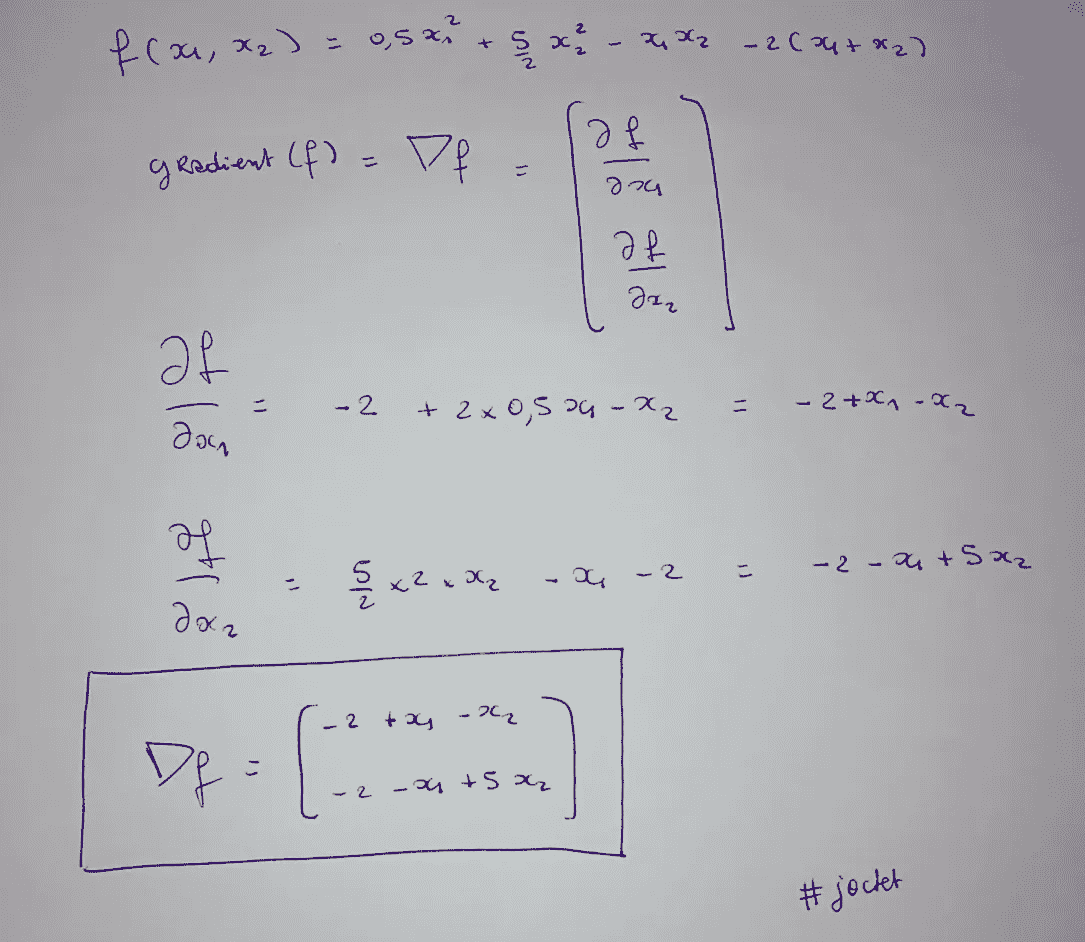 f(x₁, x₂) = 0,5 x₁² + 5/2 x₂² - x₁ x₂ - 2(x₁ + x₂)
gradient (f) = ∇f = [ ∂f/∂x₁
∂f/∂x₂ ]
∂f/∂x₁ = -2 + 2 x 0,5 x₁ - x₂ = -2 + x₁ - x₂
∂f/∂x₂ = 5/2 x 2 x x₂ - x₁ - 2 = -2 - x₁ + 5 x₂
∇f = [ -2 + x₁ - x₂
-2 - x₁ + 5 x₂ ]
# joctet